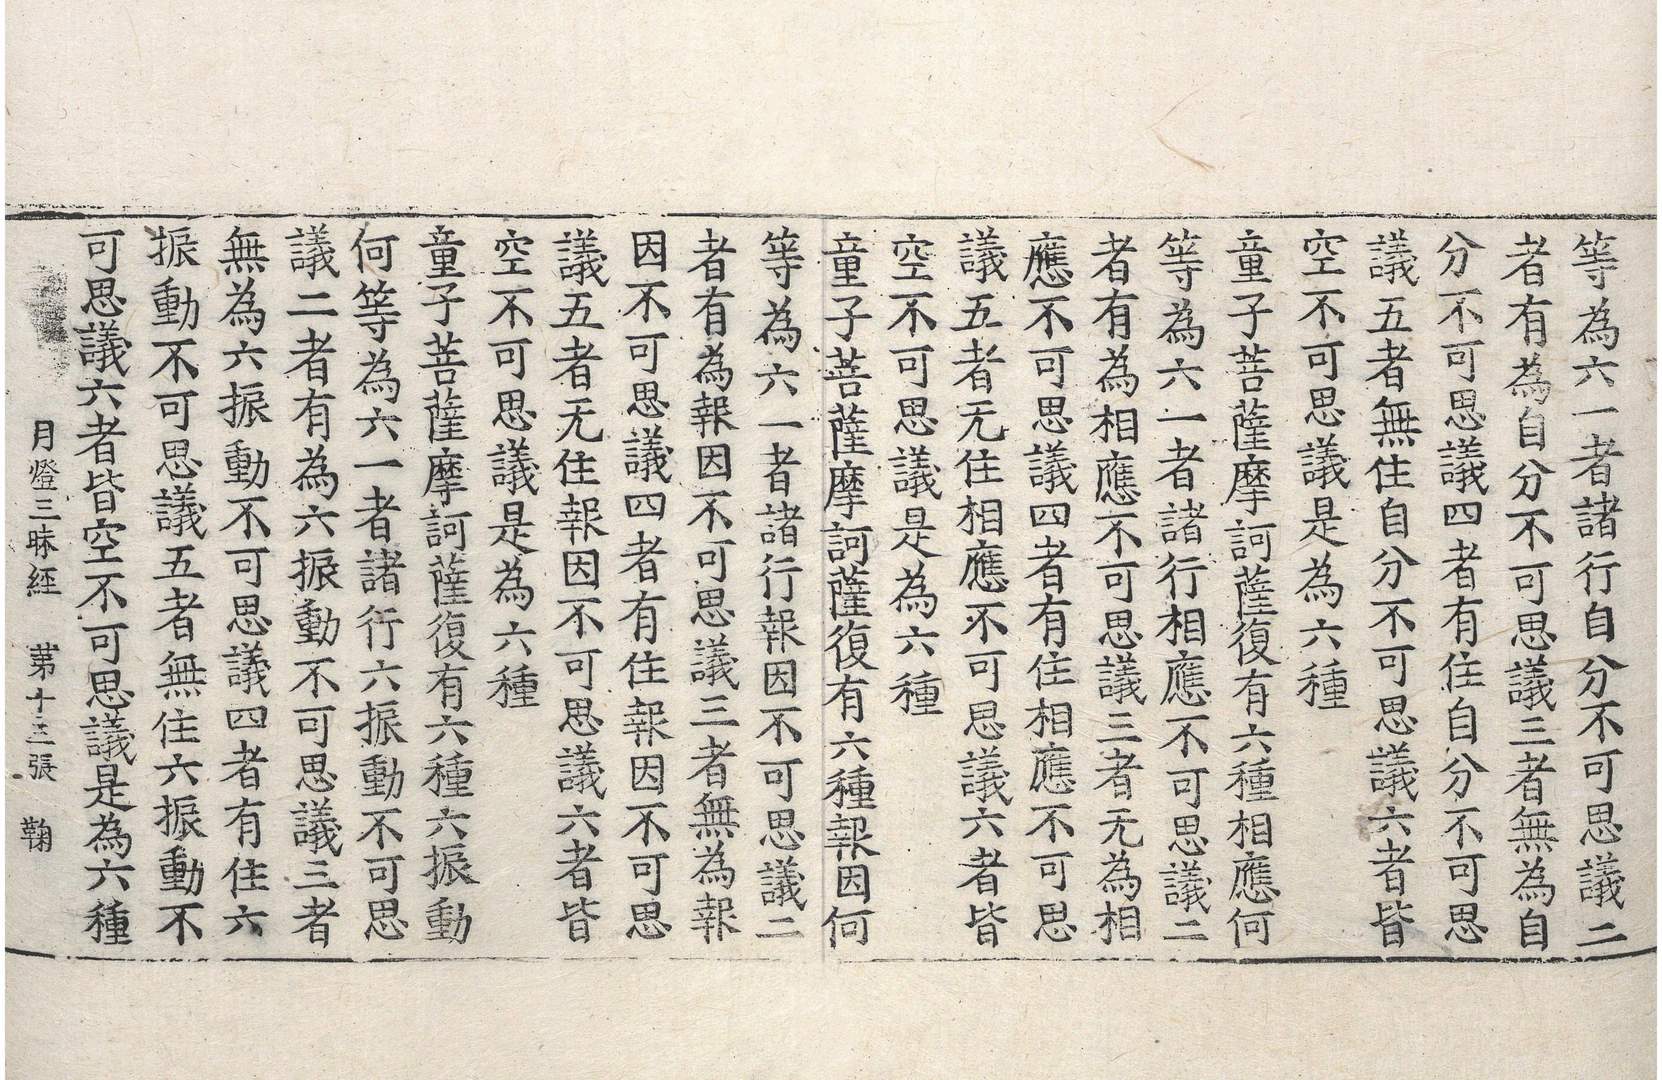 等為六一者諸行自分不可思議二
者有為自分不可思議三者無為自
分不可思議四者有住自分不可思
議五者無住自分不可思議六者皆
空不可思議是為六種
童子菩薩摩訶薩復有六種相應何
等為六一者諸行相應不可思議二
者有為相應不可思議三者无為相
應不可思議四者有住相應不可思
議五者无住相應不可思議六者皆
空不可思議是為六種
童子菩薩摩訶薩復有六種報因何
等為六一者諸行報因不可思議二
者有為報因不可思議三者無為報
因不可思議四者有住報因不可思
議五者无住報因不可思議六者皆
空不可思議是為六種
童子菩薩摩訶薩復有六種六振動
何等為六一者諸行六振動不可思
議二者有為六振動不可思議三者
無為六振動不可思議四者有住六
振動不可思議五者無住六振動不
可思議六者皆空不可思議是為六種
月燈三昧經 第十三張 鞠